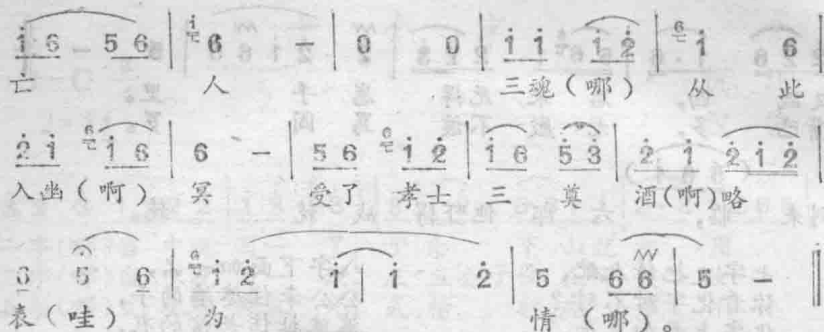 i̇ 6 5 6 | 6 – | 0 0 | i̇ i̇ i̇ 2̇ | i̇ 6 |
亡 人 三魂（哪） 从 此
2̇ i̇ i̇ 6 | 6 – | 5 6 i̇ 2̇ | i̇ 6 5̇ 3̇ | 2̇ i̇ 2̇ i̇ 2̇ |
入幽（啊） 冥 受了 孝士 三 奠 酒(啊)略
6 5 6 | i̇ 2̇ i̇ | i̇ 2̇ | 5 6 6 | 5 – ‖
表（哇） 为 情（哪）。